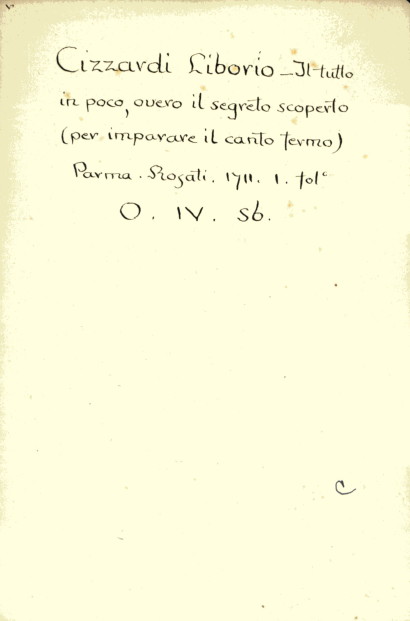 Cizzardi Liborio - Il tutto
in poco, overo il segreto scoperto
(per imparare il canto fermo)
Parma. Rosati. 1711. 1. folº
O. IV. 56.
C